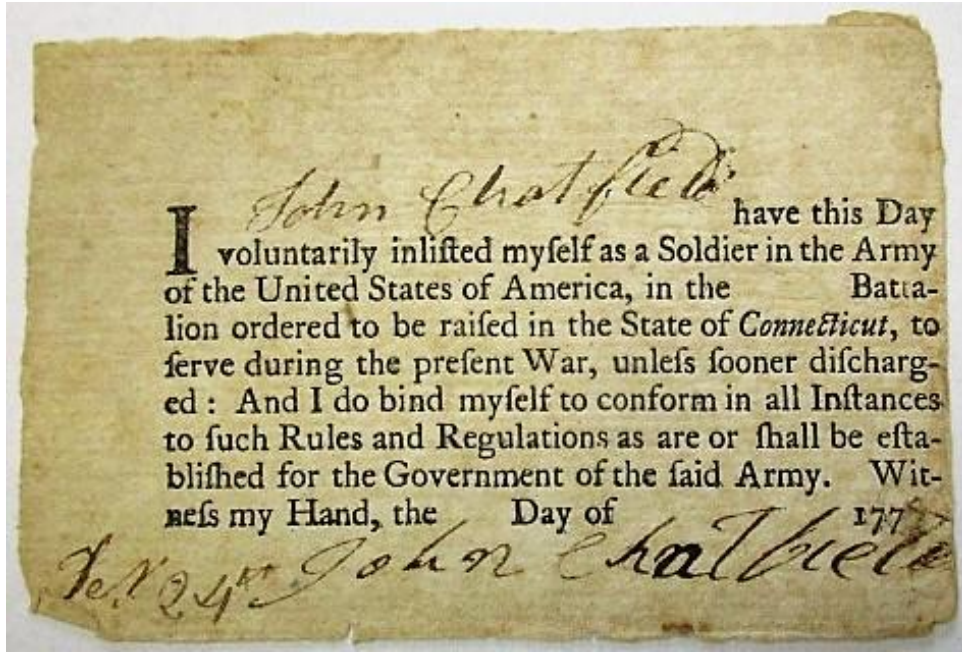 John Chatfield
I have this Day
voluntarily inliſted myſelf as a Soldier in the Army
of the United States of America, in the Batta-
lion ordered to be raiſed in the State of Connecticut, to
ſerve during the preſent War, unleſs ſooner diſcharg-
ed : And I do bind myſelf to conform in all Inſtances
to ſuch Rules and Regulations as are or ſhall be eſta-
bliſhed for the Government of the ſaid Army. Wit-
neſs my Hand, the Day of 177
24th John Chatfield